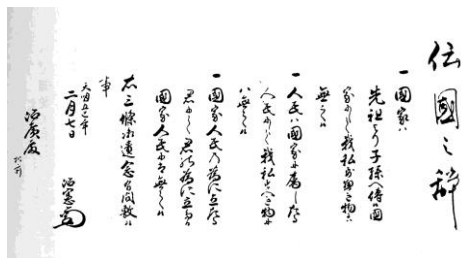 伝國之辞
一 國家ハ
先祖より子孫へ傳候國
家にして我私すへき物ニハ
無之候
一 人民ハ國家に属したる
人民にして我私すへき物に
ハ無之候
一 國家人民の為に立たる
君にして君の為に立たる
國家人民には無之候
右三條御遺念有間敷候
事
天明五巳年
二月七日 治憲
治廣殿 机前